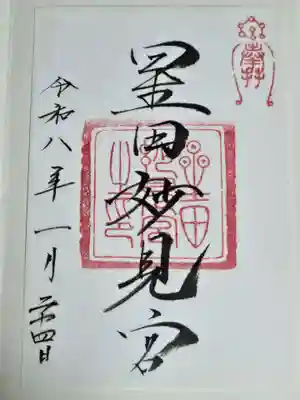 奉拝
星田妙見宮
令和八年一月二十四日